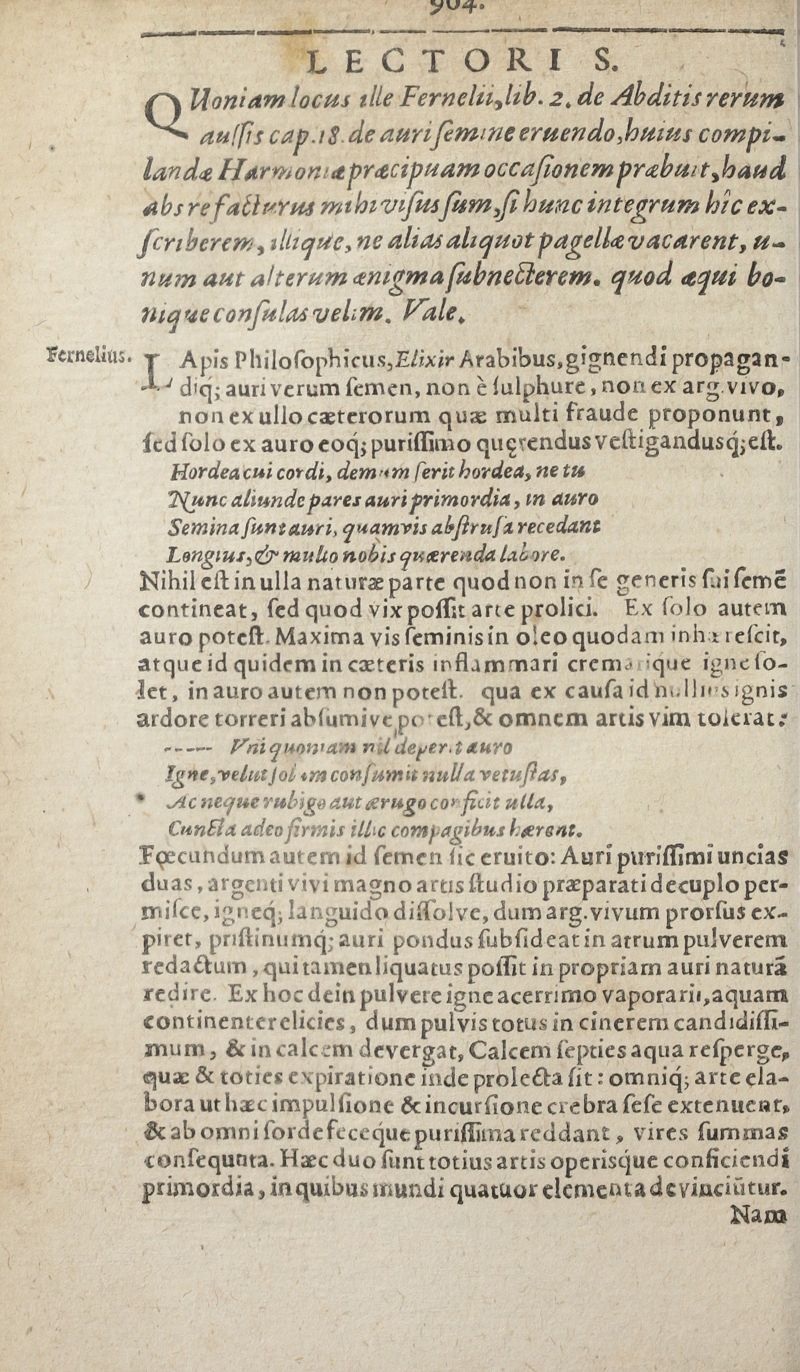 904.
LECTORI S.
QUoniam locus ille Fernelii, lib. 2. de Abditis rerum
caussis cap. 18. de auri semine eruendo, huius compi-
landæ Harmoniæ præcipuam occasionem præbuit, haud
abs re facturus mihi visus sum, si hunc integrum hîc ex-
scriberem, illique, ne alias aliquot pagellæ vacarent, u-
num aut alterum ænigma subnecterem. quod æqui bo-
nique consulas velim. Vale.
Fernelius.
LApis Philosophicus, Elixir Arabibus, gignendi propagan-
diq; auri verum semen, non è sulphure, non ex arg. vivo,
non ex ullo cæterorum quæ multi fraude proponunt,
sed solo ex auro eoq; purissimo quęrendus vestigandusq́; est.
Hordea cui cordi, demum serit hordea, ne tu
Nunc aliunde pares auri primordia, in auro
Semina sunt auri, quamvis abstrusa recedant
Longius, & multo nobis quærenda labore.
Nihil est in ulla naturæ parte quod non in se generis sui semẽ
contineat, sed quod vix possit arte prolici. Ex solo autem
auro potest. Maxima vis seminis in oleo quodam inhærescit,
atque id quidem in cæteris inflammari cremarique igne so-
let, in auro autem non potest. qua ex causa id nullius ignis
ardore torreri absumive potest, & omnem artis vim tolerat:
----- Vni quoniam nil deperit auro
Igne, velut solum consumit nulla vetustas,
* Ac neque rubigo aut ærugo conficit ulla,
Cuncta adeo firmis illic compagibus hærent.
Fœcundum autem id semen sic eruito: Auri purissimi uncias
duas, argenti vivi magno artis studio præparati decuplo per-
misce, igneq́; languido dissolve, dum arg. vivum prorsus ex-
piret, pristinumq́; auri pondus subsideat in atrum pulverem
redactum, qui tamen liquatus possit in propriam auri naturã
redire. Ex hoc dein pulvere igne acerrimo vaporarii, aquam
continenter elicies, dum pulvis totus in cinerem candidissi-
mum, & in calcem devergat, Calcem septies aqua resperge,
quæ & toties expiratione inde prolecta sit: omniq́; arte ela-
bora ut hæc impulsione & incursione crebra sese extenuent,
& ab omni sorde feceque purissima reddant, vires summas
consequuta. Hæc duo sunt totius artis operisq́ue conficiendi
primordia, in quibus mundi quatuor elementa devinciũtur.
Nam